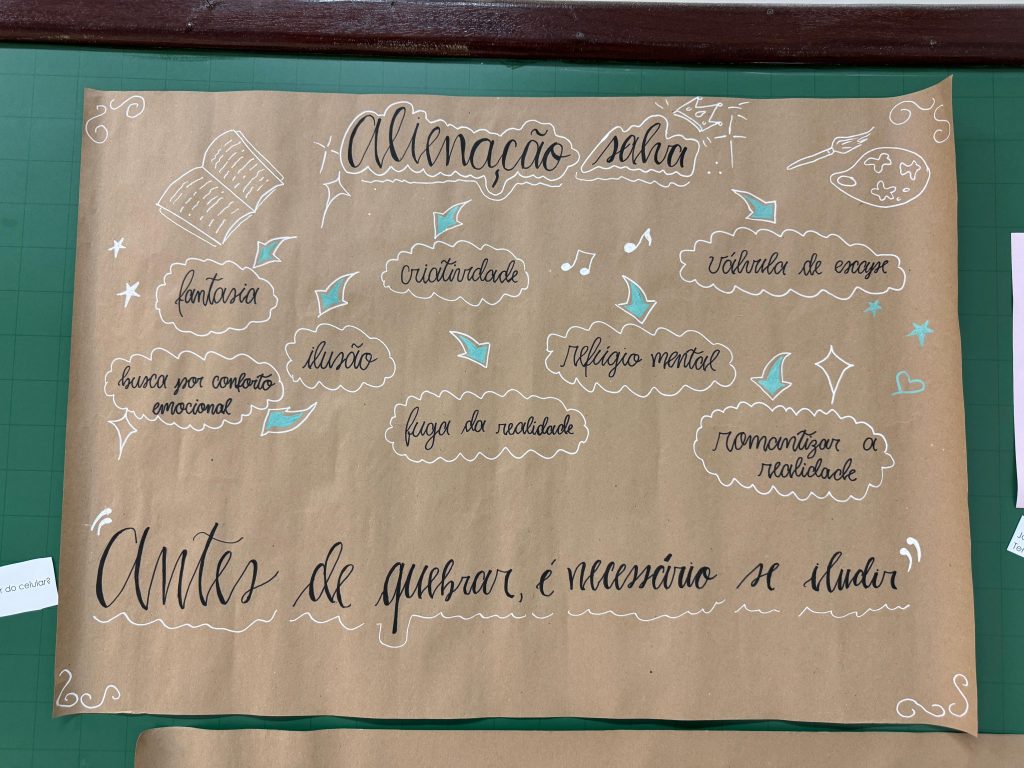 Alienação salva
fantasia
criatividade
válvula de escape
ilusão
refúgio mental
busca por conforto
emocional
fuga da realidade
romantizar a
realidade
"Antes de quebrar, é necessário se iludir"
r do celular?